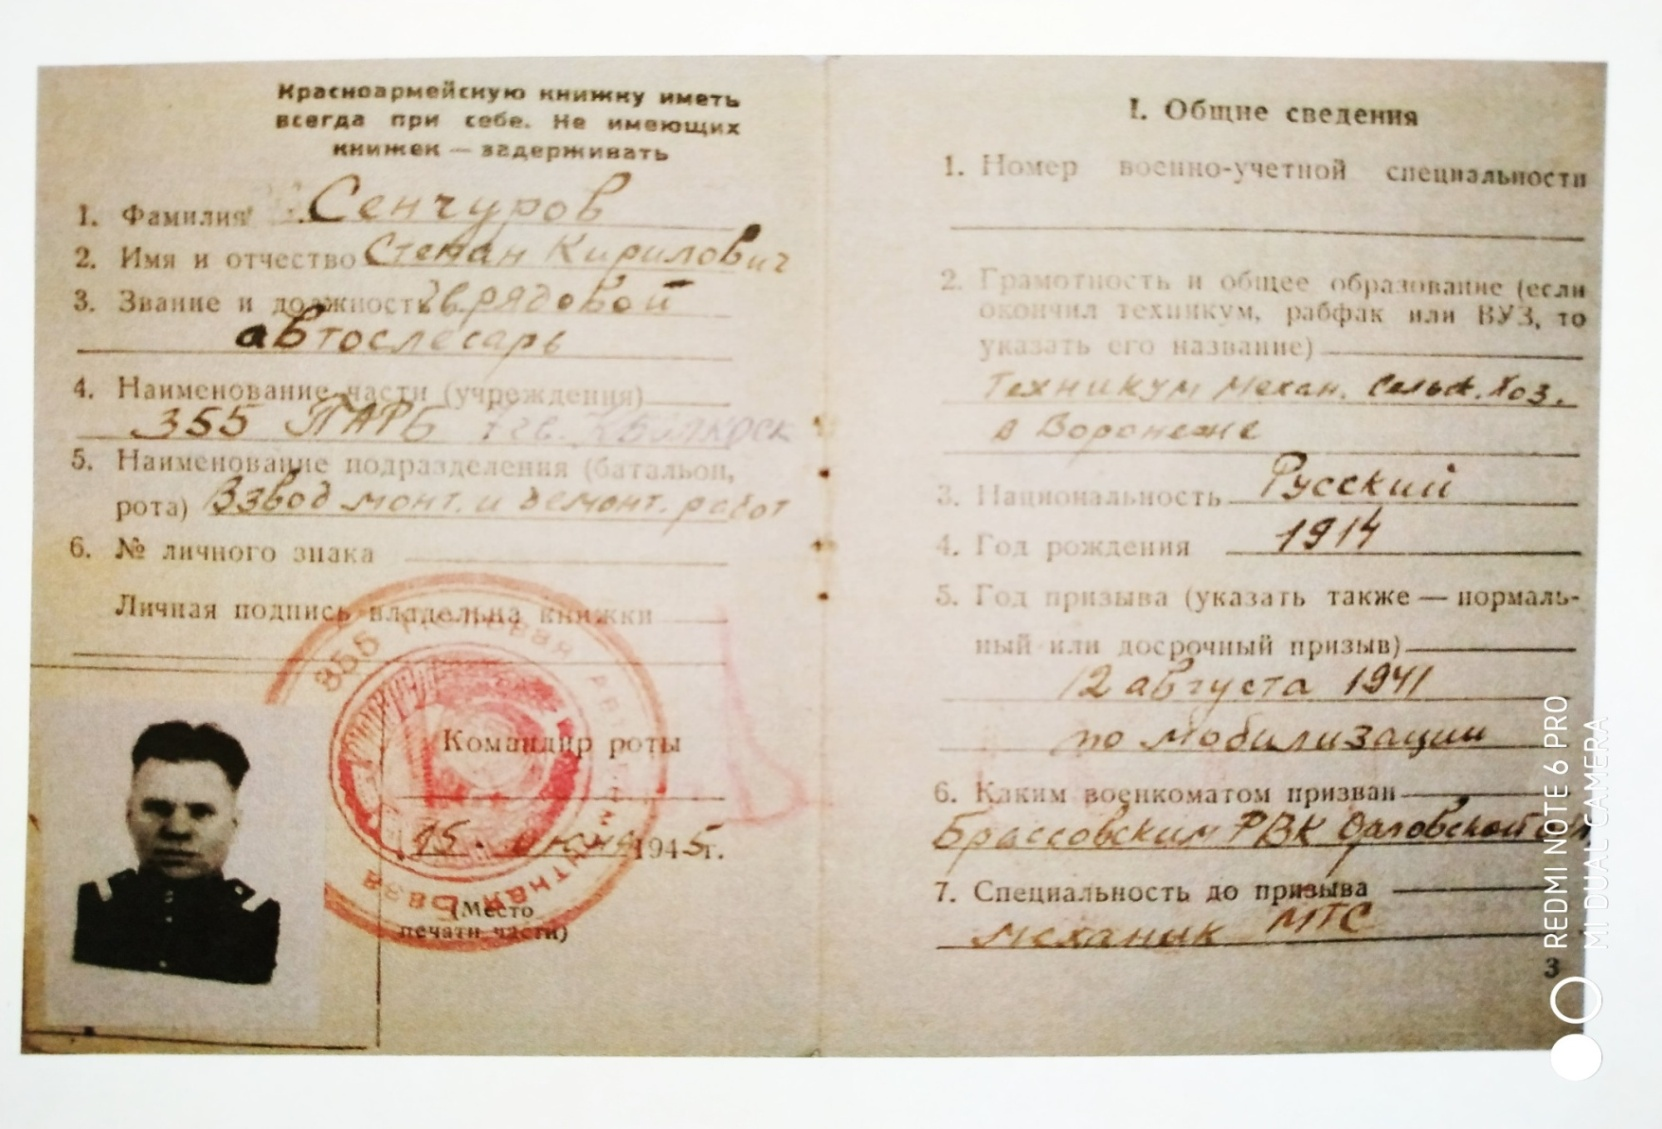 Красноармейскую книжку иметь
всегда при себе. Не имеющих
книжек — задерживать
1. Фамилия Сенчуров
2. Имя и отчество Степан Кирилович
3. Звание и должность гв. рядовой
автослесарь
4. Наименование части (учреждения)
355 ПАРБ
5. Наименование подразделения (батальон,
рота) Взвод монт. и демонт. работ
6. № личного знака
Личная подпись владельца книжки
355 Полевая
Командир роты
15 июня 1945 г.
(Место
печати части)
I. Общие сведения
1. Номер военно-учетной специальности
2. Грамотность и общее образование (если
окончил техникум, рабфак или ВУЗ, то
указать его название)
Техникум механ. сельск. хоз.
в Воронеже
3. Национальность Русский
4. Год рождения 1914
5. Год призыва (указать также — нормаль-
ный или досрочный призыв)
12 августа 1941
по мобилизации
6. Каким военкоматом призван
Брассовским РВК Орловской обл
7. Специальность до призыва
механик МТС
3
REDMI NOTE 6 PRO
MI DUAL CAMERA